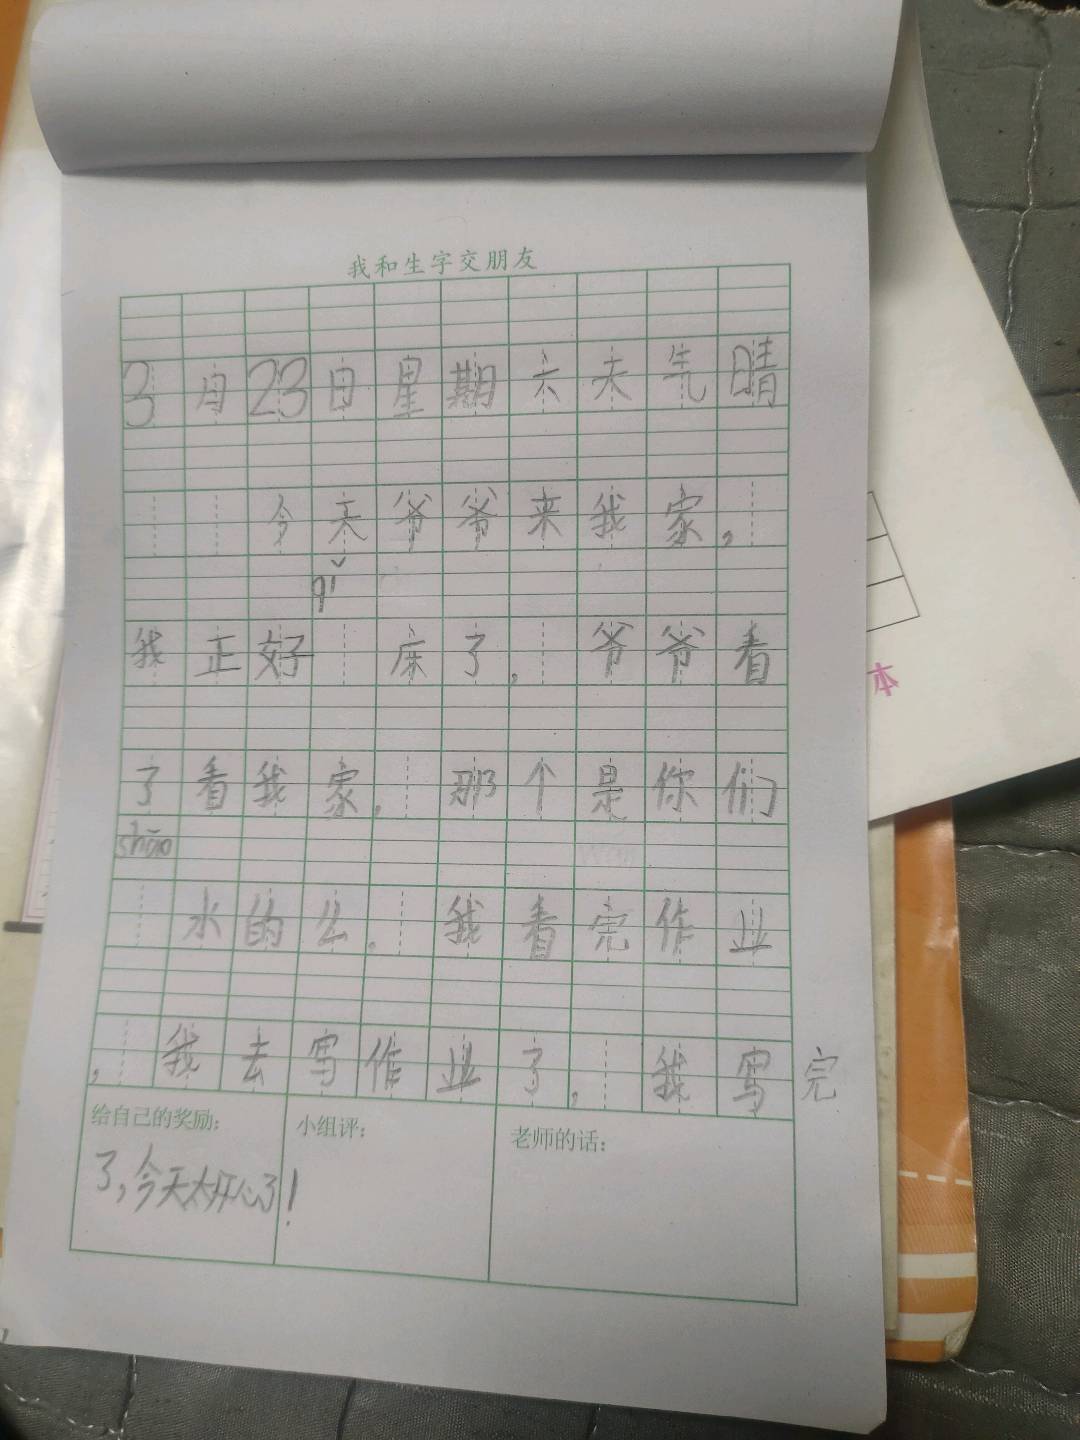 我和生字交朋友
3月23日星期六天气晴
今天爷爷来我家，
qǐ
我正好 床了，爷爷看
了看我家，那个是你们
shāo
水的么，我看完作业
，我去写作业了，我写完
给自己的奖励：
小组评：
老师的话：
了，今天太开心了！
本